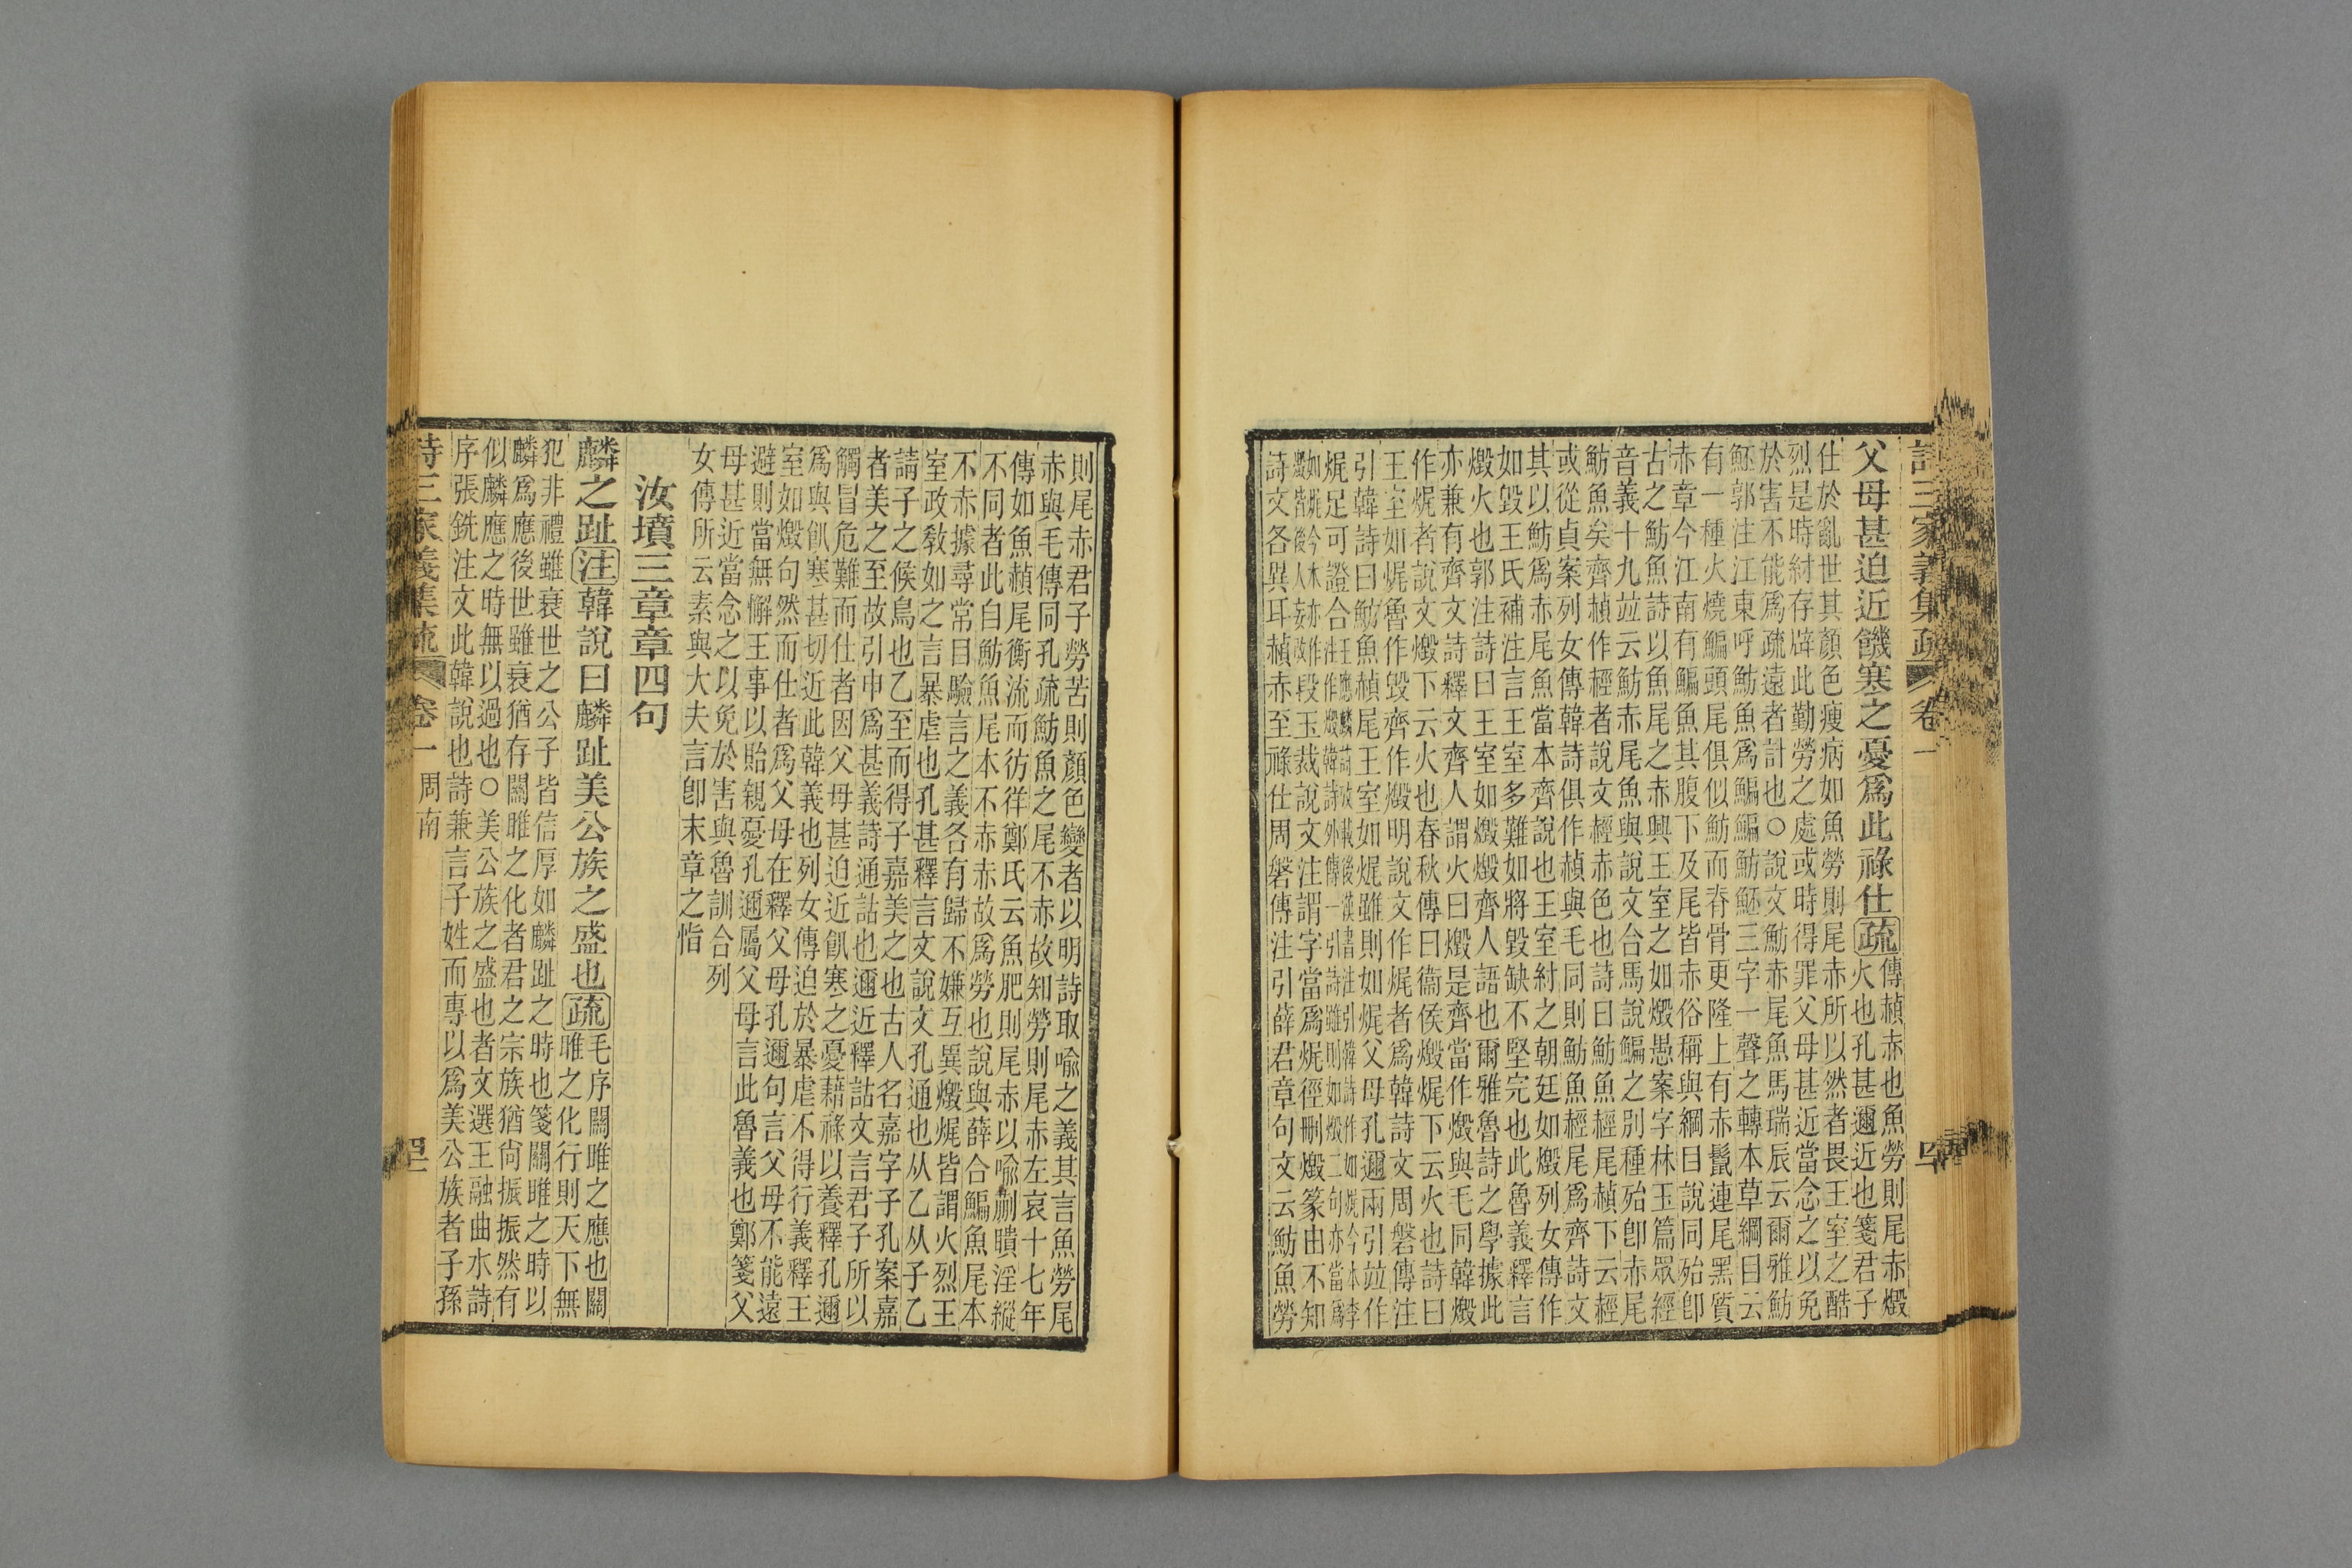 詩三家義集疏 卷一
父母甚迫近饑寒之憂爲此祿仕疏
傳赬赤也魚勞則尾赤燬
火也孔甚邇近也箋君子
仕於亂世其顏色瘦病如魚勞則尾赤所以然者畏王室之酷
烈是時紂存辟此勤勞之處或時得罪父母甚近當念之以免
於害不能爲疏遠者計也○說文魴赤尾魚馬瑞辰云爾雅魴
魾郭注江東呼魴魚爲鯿鯿魴魾三字一聲之轉本草綱目云
有一種火燒鯿頭尾俱似魴而脊骨更隆上有赤鬣連尾黑質
赤章今江南有鯿魚其腹下及尾皆赤俗稱與綱目說同殆卽
古之魴魚詩以魚尾之赤興王室之如燬愚案字林玉篇眾經
音義十九竝云魴赤尾魚與說文合馬說鯿之別種殆卽赤尾
魴魚矣齊赬作䞓者說文䞓赤色也詩曰魴魚䞓尾赬下云䞓
或從貞案列女傳韓詩俱作赬與毛同則魴魚䞓尾爲齊詩文
其以魴爲赤尾魚當本齊說也王室紂之朝廷如燬列女傳作
如毀王氏補注言王室多難如將毀缺不堅完也此魯義釋言
燬火也郭注詩曰王室如燬燬齊人語也爾雅魯詩之學據此
亦兼有齊文詩釋文齊人謂火曰燬是齊當作燬與毛同韓燬
作𤈦者說文燬下云火也春秋傳曰衞侯燬𤈦下云火也詩曰
王室如𤈦魯作毀齊作燬明說文作𤈦者爲韓詩文周磐傳注
引韓詩曰魴魚赬尾王室如𤈦雖則如𤈦父母孔邇兩引竝作
𤈦足可證合王應麟詩攷載後漢書注引韓詩作如𤈦今本李
注作燬韓詩外傳一引詩雖則如燬二句亦當爲
如𤈦今本亦作
燬皆後人妄改段玉裁說文注謂字當爲𤈦徑刪燬篆由不知
詩文各異耳赬赤至祿仕周磐傳注引薛君章句文云魴魚勞
則尾赤君子勞苦則顏色變者以明詩取喻之義其言魚勞尾
赤與毛傳同孔疏魴魚之尾不赤故知勞則尾赤左哀十七年
傳如魚赬尾衡流而彷徉鄭氏云魚肥則尾赤以喻蒯聵淫縱
不同者此自魴魚尾本不赤赤故爲勞也說與薛合鯿魚尾本
不赤據尋常目驗言之義各有歸不嫌互異燬𤈦皆謂火烈王
室政敎如之言暴虐也孔甚釋言文說文孔通也从乙从子乙
請子之候鳥也乙至而得子嘉美之也古人名嘉字子孔案嘉
者美之至故引申爲甚義詩通詁也邇近釋詁文言君子所以
觸冒危難而仕者因父母甚迫近飢寒之憂藉祿以養釋孔邇
爲與飢寒甚切近此韓義也列女傳迫於暴虐不得行義釋王
室如燬句然而仕者爲父母在釋父母孔邇句言父母不能遠
避則當無懈王事以貽親憂孔邇屬父母言此魯義也鄭箋父
母甚近當念之以免於害與魯訓合列
女傳所云素與大夫言卽末章之恉
汝墳三章章四句
麟之趾注韓說曰麟趾美公族之盛也疏
毛序關雎之應也關
雎之化行則天下無
犯非禮雖衰世之公子皆信厚如麟趾之時也箋關雎之時以
麟爲應後世雖衰猶存關雎之化者君之宗族猶尙振振然有
似麟應之時無以過也○美公族之盛也者文選王融曲水詩
序張銑注文此韓說也詩兼言子姓而專以爲美公族者子孫
詩三家義集疏 卷一 周南